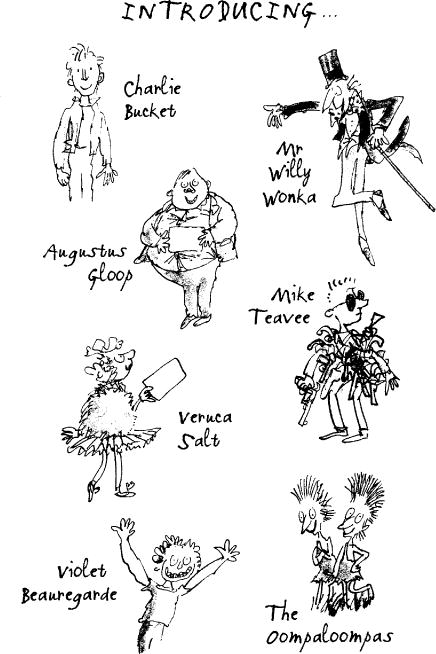 INTRODUCING...
Charlie
Bucket
Mr
Willy
Wonka
Augustus
Gloop
Mike
Teavee
Veruca
Salt
Violet
Beauregarde
The
Oompaloompas